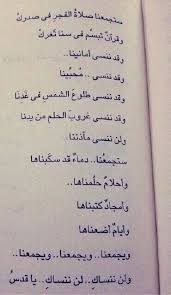 ستجمعنا صلاةُ الفجرِ فى صدركْ
وقرآنٌ تبسَّم فى سنا ثغركْ
وقد ننسى أمانينا..
وقد ننسى.. مُحبِّينا
وقد ننسى طلوعَ الشمسِ فى غَدنا
وقد ننسى غروبَ الحلم من يدنا
ولن ننسى مآذننا..
ستجمعُنا.. دماءٌ قد سكبناها
وأحلامٌ حلُمناها..
وأمجادٌ كتبناها
وأيامٌ أضعناها
ويجمعنا.. ويجمعنا.. ويجمعنا..
ولن ننساكِ.. لن ننساكِ.. يا قدسُ